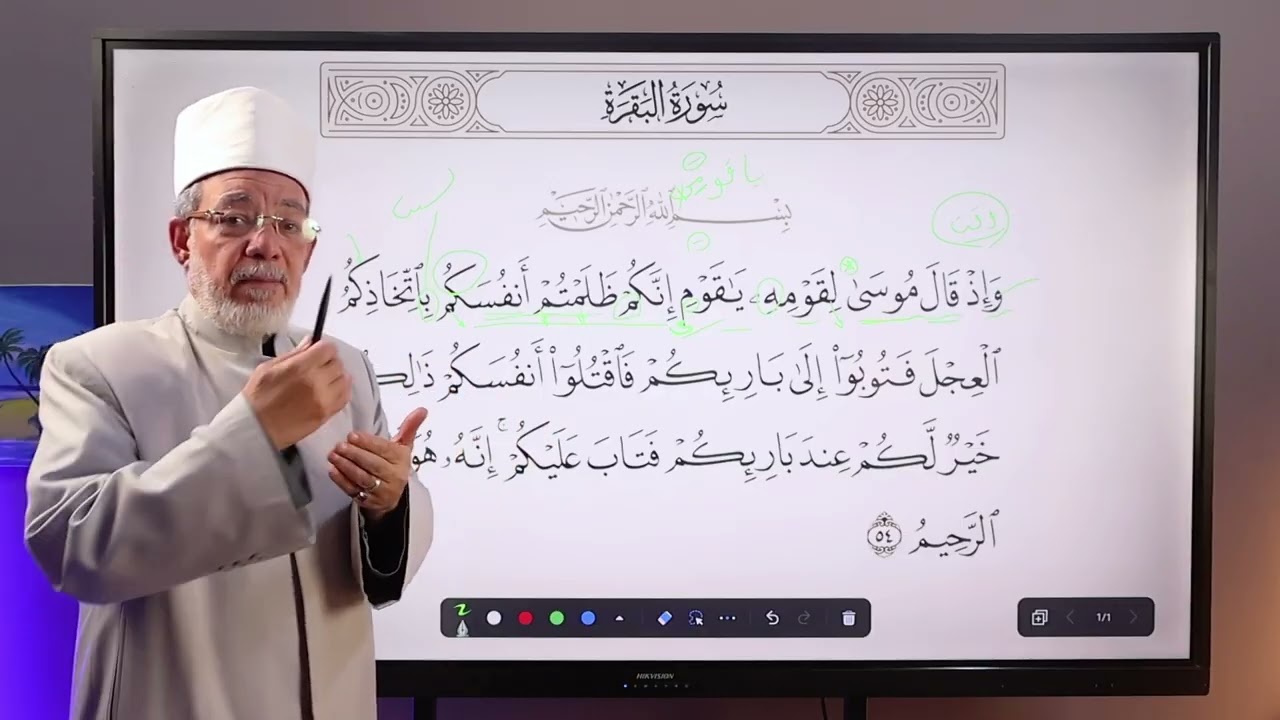 سُورَةُ البَقَرَةِ
يا قومي
بِسْمِ ٱللَّهِ ٱلرَّحْمَٰنِ ٱلرَّحِيمِ
وَإِذْ قَالَ مُوسَىٰ لِقَوْمِهِۦ يَٰقَوْمِ إِنَّكُمْ ظَلَمْتُمْ أَنفُسَكُم بِٱتِّخَاذِكُمُ
ٱلْعِجْلَ فَتُوبُوٓا۟ إِلَىٰ بَارِئِكُمْ فَٱقْتُلُوٓا۟ أَنفُسَكُمْ
خَيْرٌ لَّكُمْ عِندَ بَارِئِكُمْ فَتَابَ عَلَيْكُمْ ۚ إِنَّهُۥ هُوَ
ٱلرَّحِيمُ ٥٤
1/1
HIKVISION